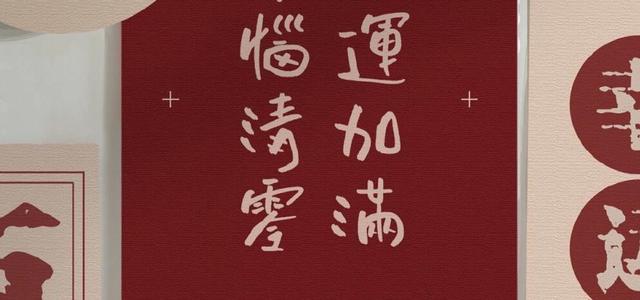 運加滿
惱清零